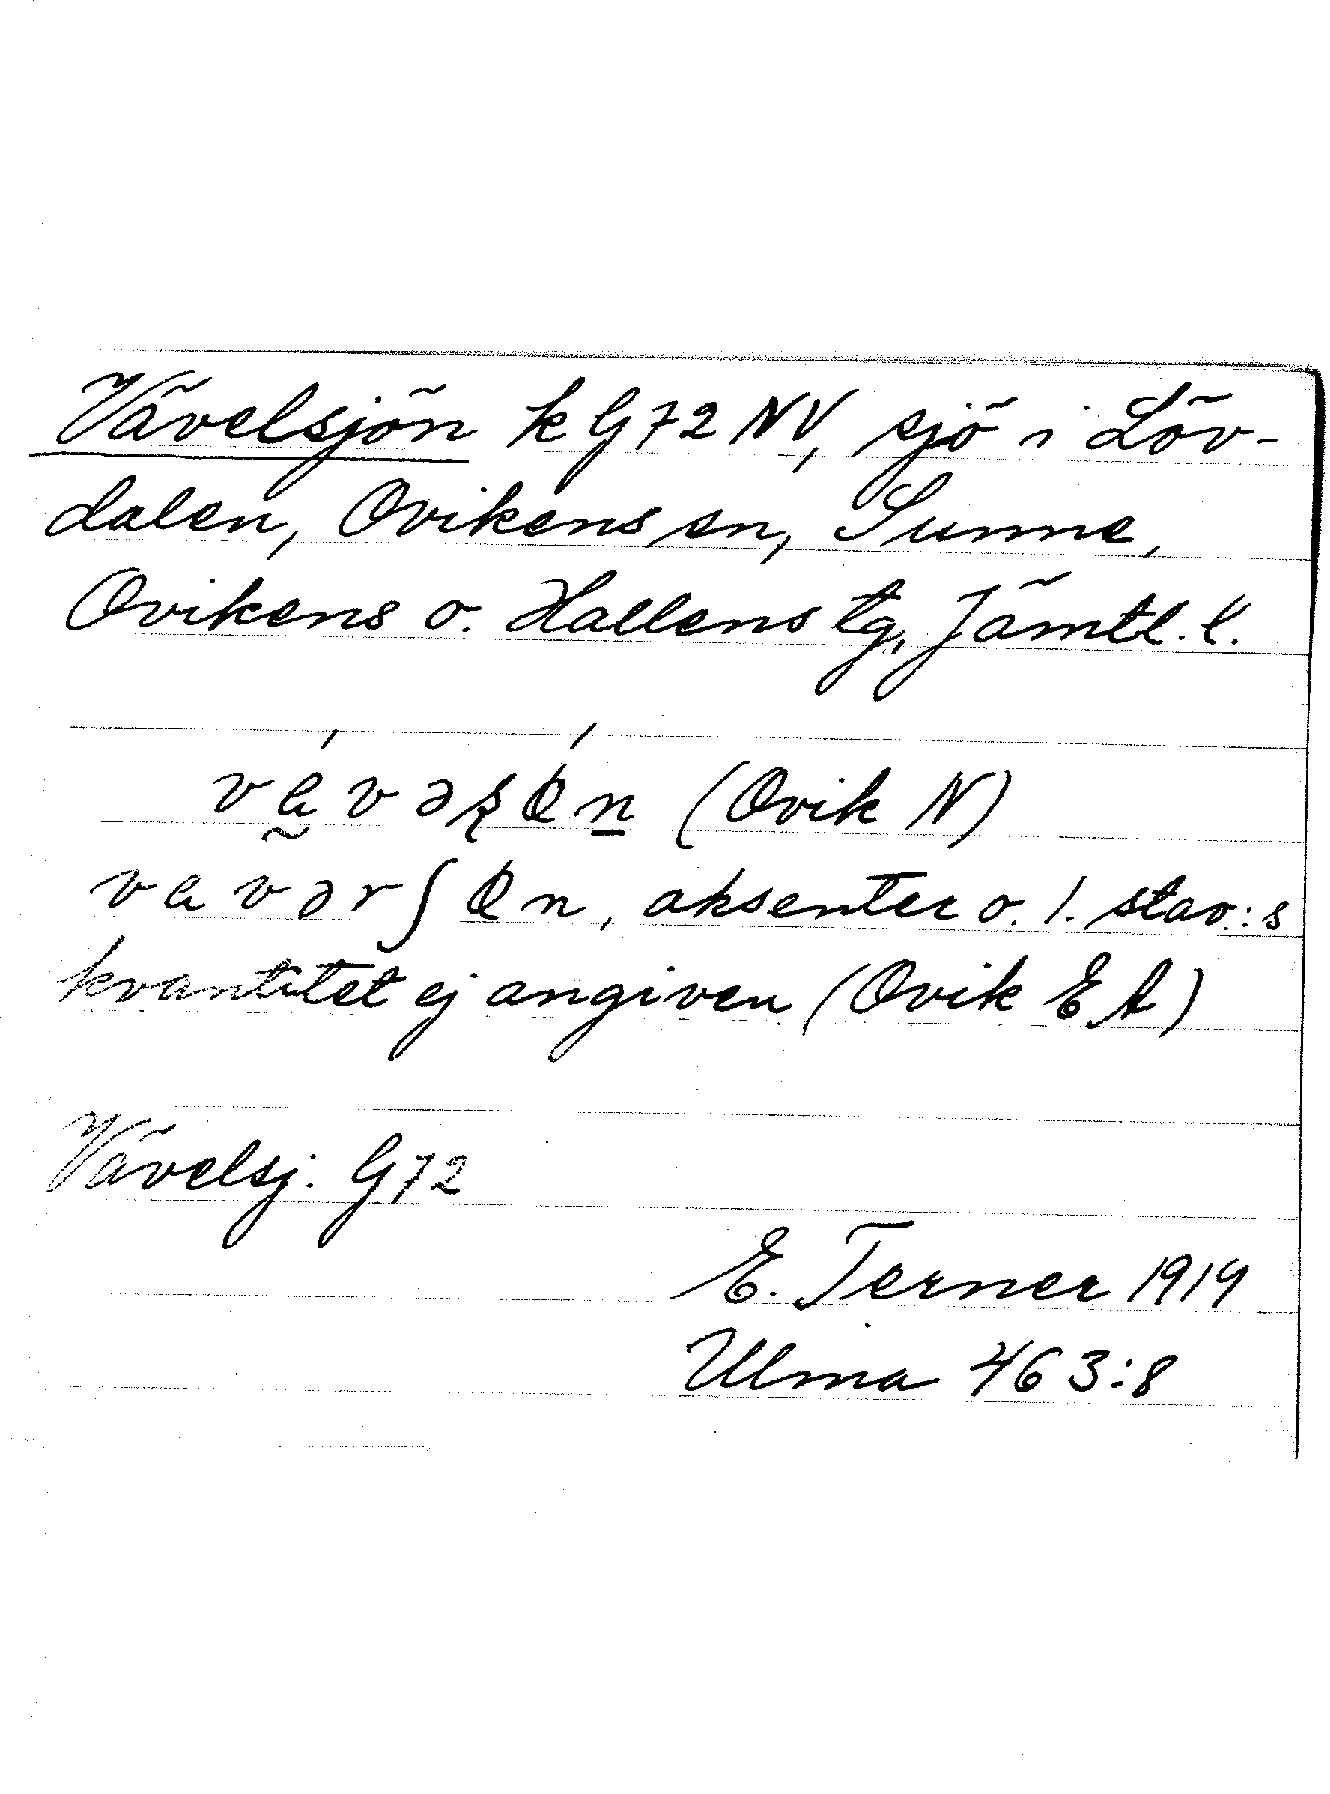 Vävelsjön k G72 NV, sjö i Löv-
dalen, Ovikens sn, Sunne,
Ovikens o. Hallens tg, Jämtl. l.
(Ovik N)
aksenter o. 1. stav:s
kvantitet ej angiven (Ovik E A)
Vävelsj. G72
E. Terner 1919
Ulma 463:8